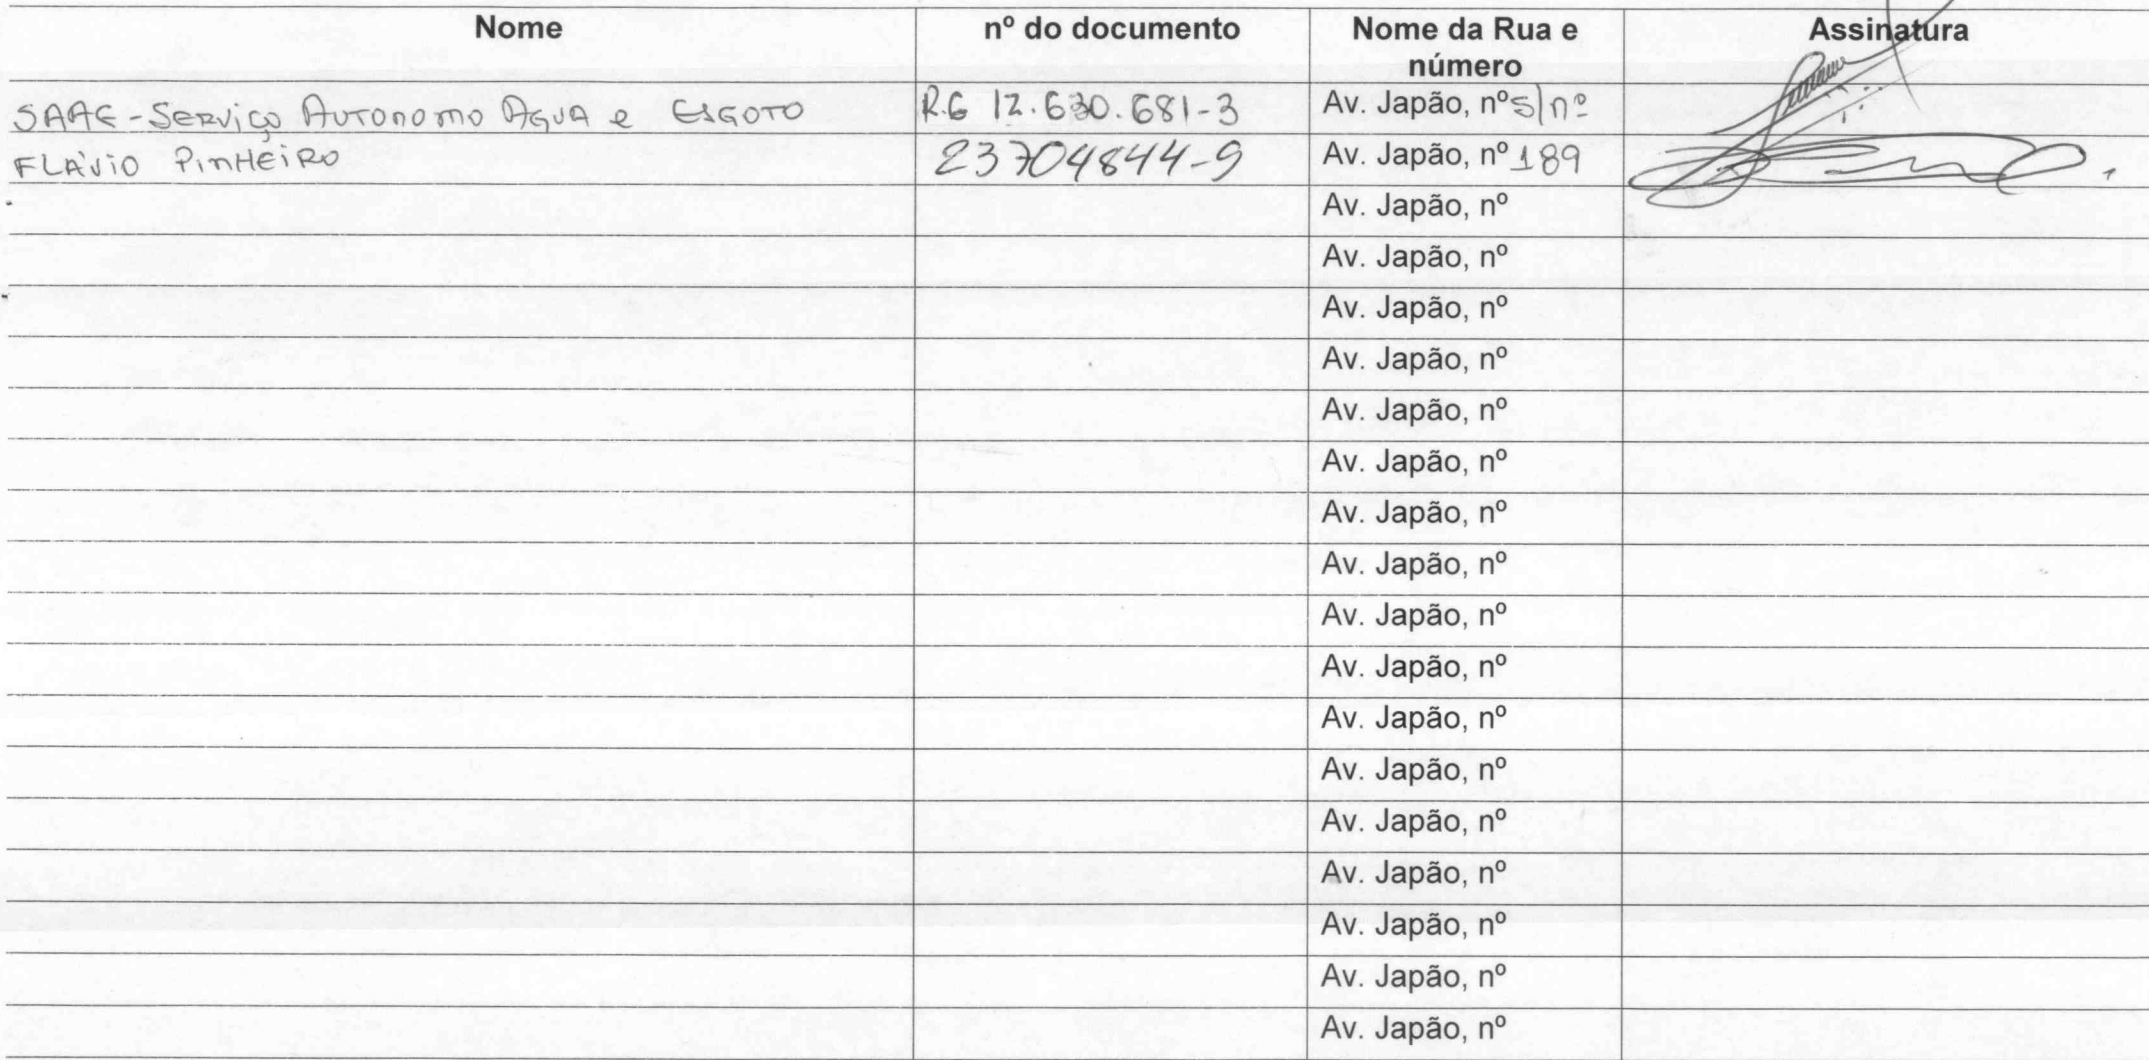 Nome nº do documento Nome da Rua e Assinatura
número
SAAE - Serviço Autonomo Agua e Esgoto R.G 12.630.681-3 Av. Japão, nº s/nº
FLÁViO PinHEiRO 23704844-9 Av. Japão, nº 189
Av. Japão, nº
Av. Japão, nº
Av. Japão, nº
Av. Japão, nº
Av. Japão, nº
Av. Japão, nº
Av. Japão, nº
Av. Japão, nº
Av. Japão, nº
Av. Japão, nº
Av. Japão, nº
Av. Japão, nº
Av. Japão, nº
Av. Japão, nº
Av. Japão, nº
Av. Japão, nº
Av. Japão, nº